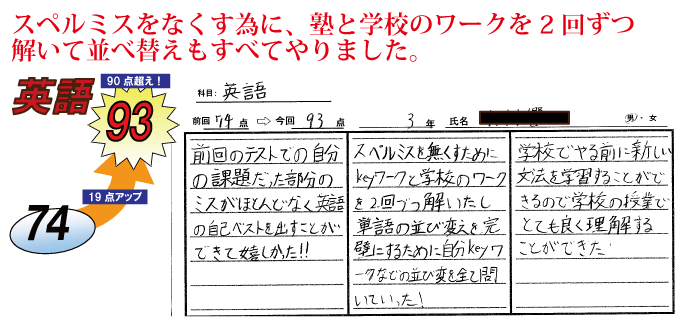 スペルミスをなくす為に、塾と学校のワークを2回ずつ
解いて並べ替えもすべてやりました。
英語
90点超え！
93
19点アップ
74
科目: 英語
前回 74 点 ⇨ 今回 93 点 3 年 氏名 男・女
前回のテストでの自分
の課題だった部分の
ミスがほとんどなく英語
の自己ベストを出すことが
できて嬉しかった!!
スペルミスを無くすために
keyワークと学校のワーク
を2回づつ解いたし
単語の並び変えを完
璧にするために自分keyワ
ークなどの並び変を全て問
いていった!
学校でやる前に新しい
文法を学習することがで
きるので学校の授業で
とても良く理解する
ことができた